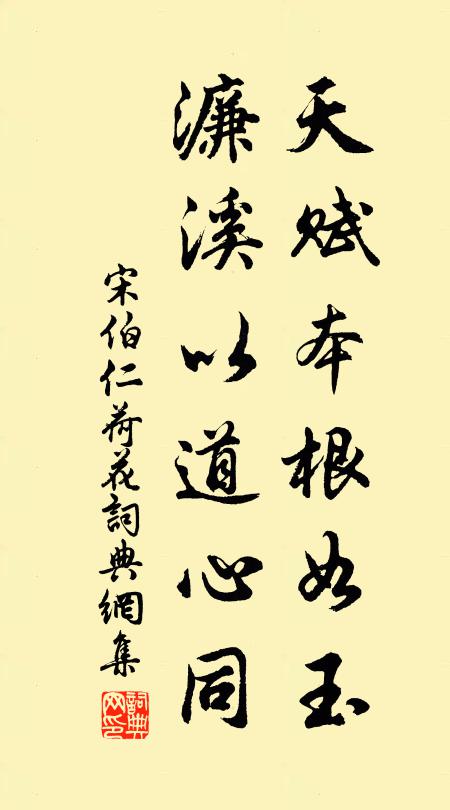 天赋本根如玉
濂溪以道心同
宋伯仁荷花詞典網集
詞典网印